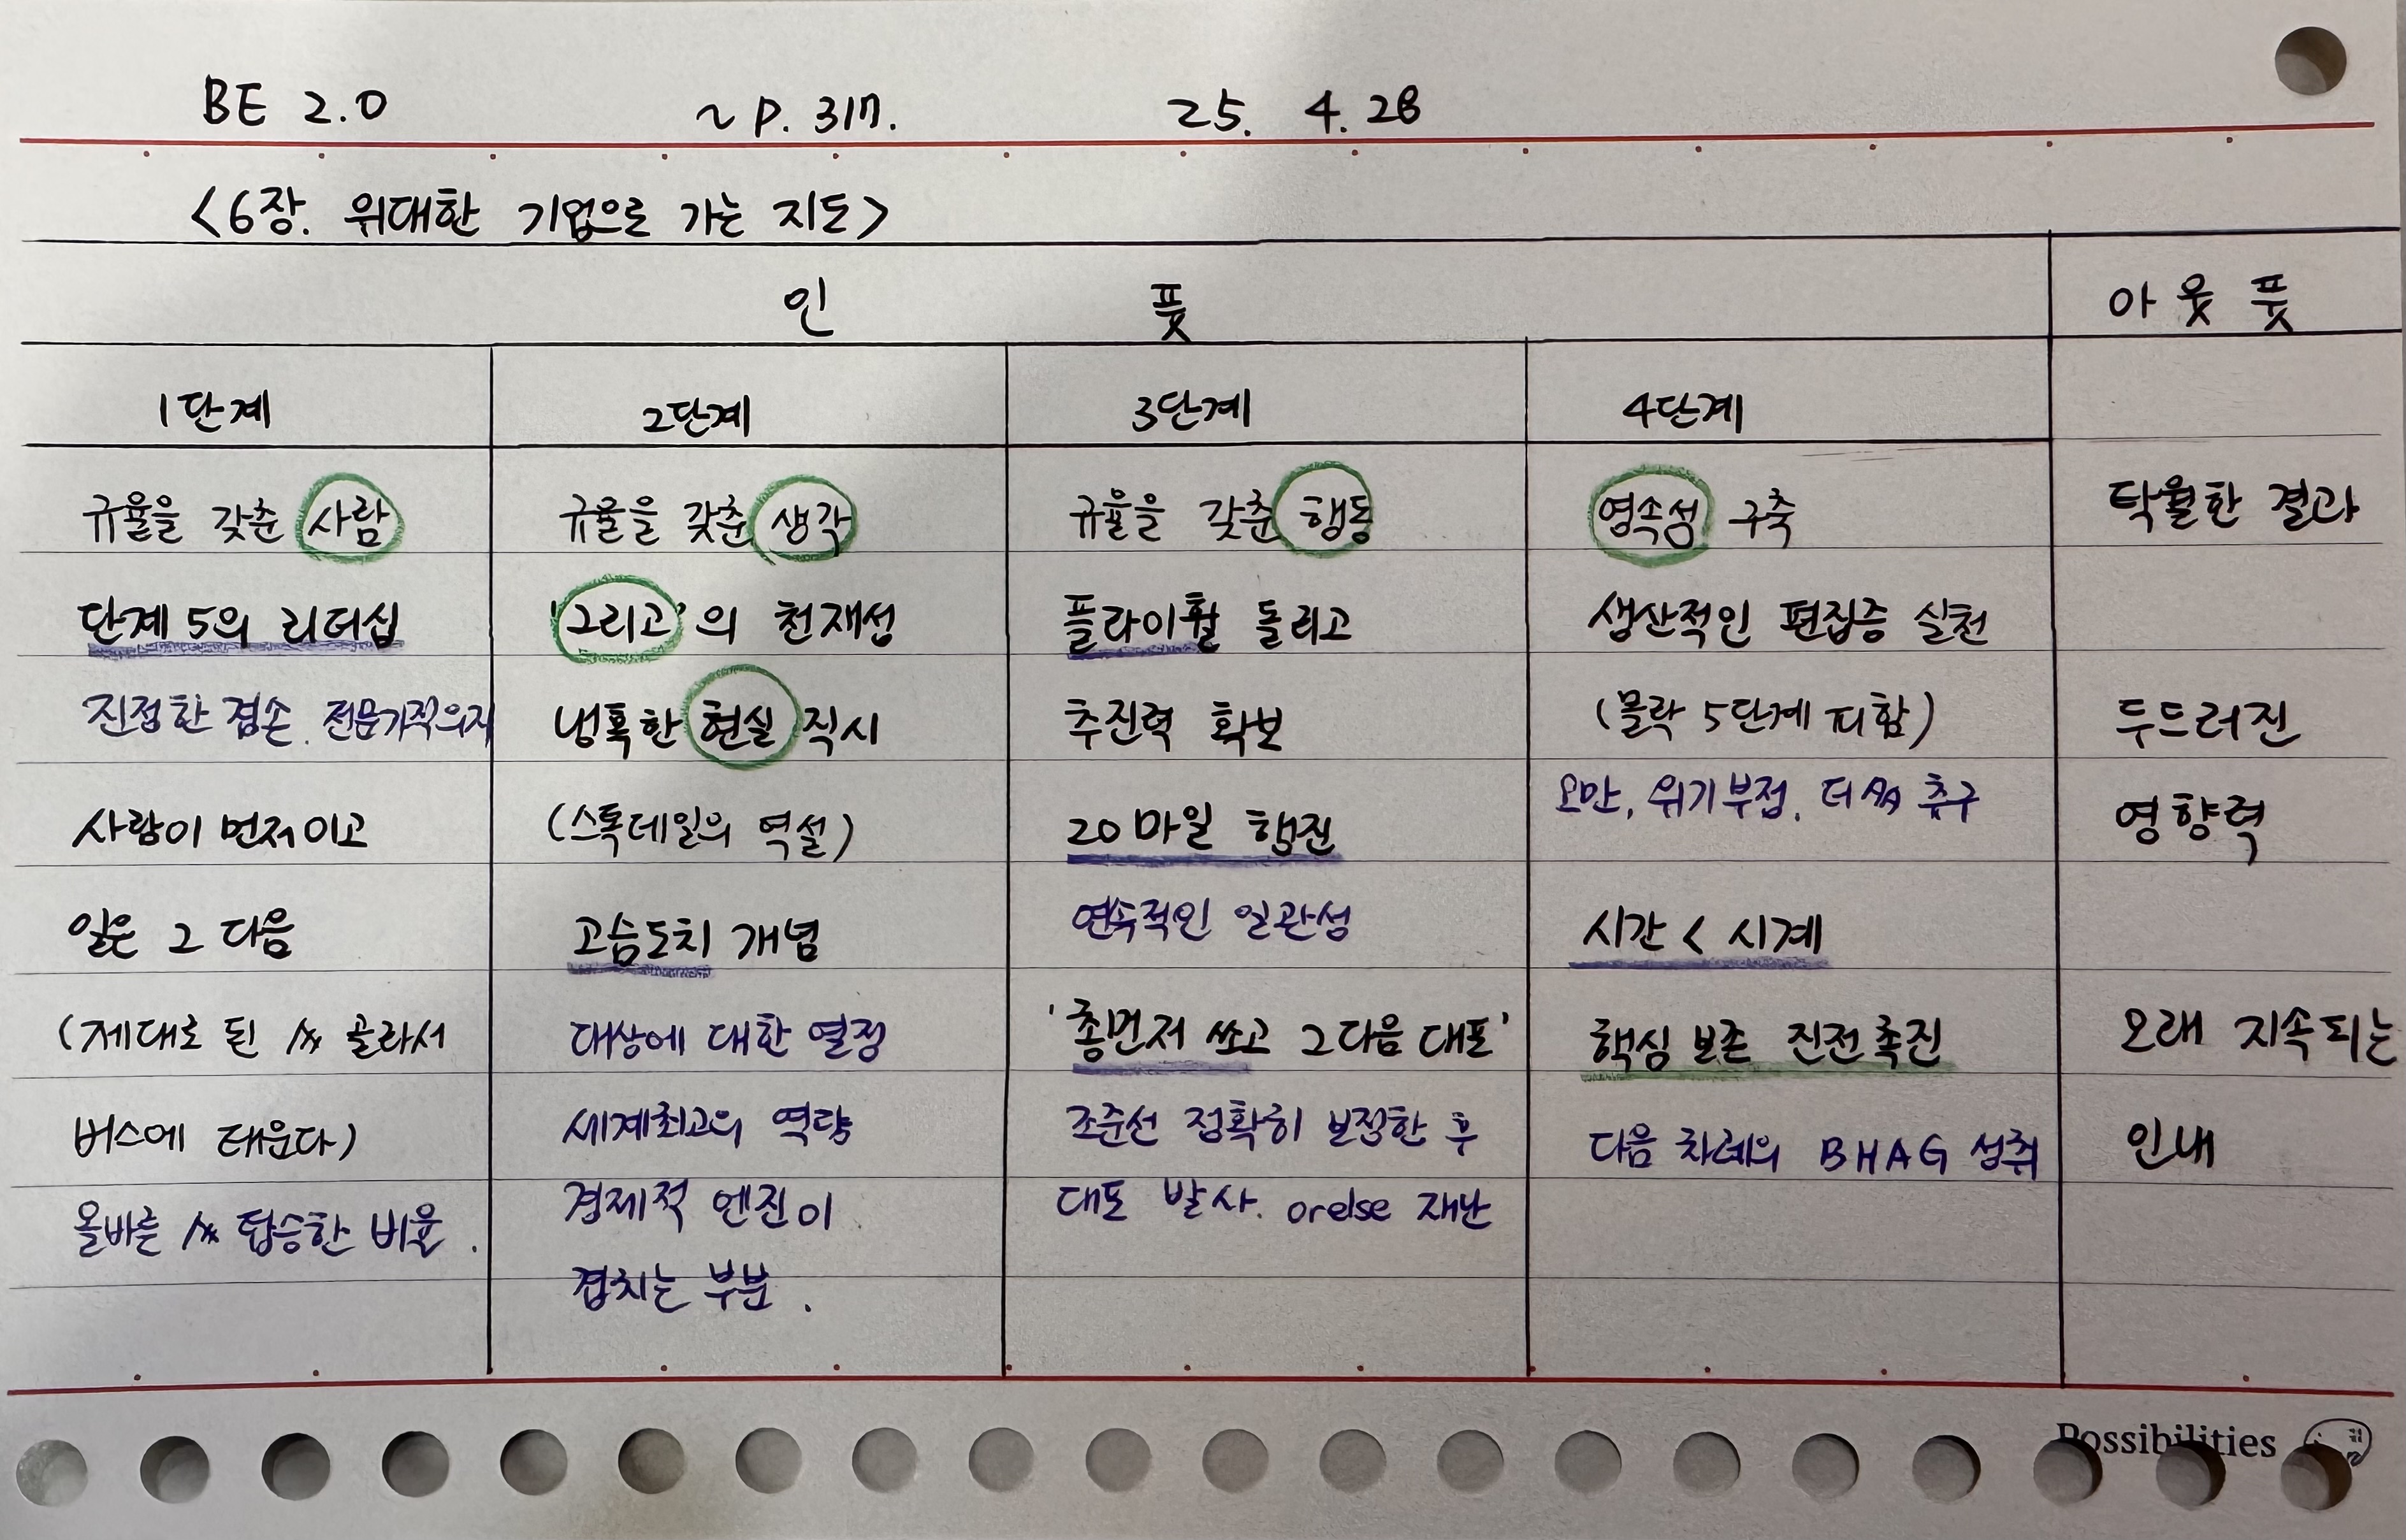 BE 2.0 ~ P. 317. 25. 4. 28
<6장. 위대한 기업으로 가는 지도>
인 풋 아웃풋
1단계
규율을 갖춘 사람
단계 5의 리더십
진정한 겸손. 전문가적의지
사람이 먼저이고
일은 그 다음
(제대로 된 골라서
버스에 태운다)
올바른 탑승한 비율.
2단계
규율을 갖춘 생각
'그리고'의 천재성
냉혹한 현실 직시
(스톡데일의 역설)
고슴도치 개념
대상에 대한 열정
세계최고의 역량
경제적 엔진이
겹치는 부분.
3단계
규율을 갖춘 행동
플라이휠 돌리고
추진력 확보
20마일 행진
연속적인 일관성
'총먼저 쏘고 그다음 대포'
조준선 정확히 보정한 후
대포 발사. orelse 재난
4단계
영속성 구축
생산적인 편집증 실천
(몰락 5단계 피함)
오만, 위기부정, 더 추구
시간 < 시계
핵심 보존 진전촉진
다음 차례의 BHAG 성취
탁월한 결과
두드러진
영향력
오래 지속되는
인내
Possibilities